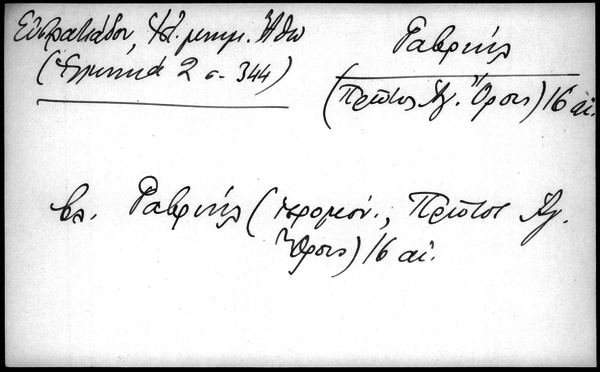 Εὐστρατιάδου, Ἁγ. μνημ. Ἄθω
(Ἑλληνικά 2 σ. 344)
Γαβριήλ
(Πρῶτος Ἁγ. Ὄρους) 16 αἰ.
βλ. Γαβριήλ (ἱερομόν., Πρῶτος Ἁγ.
Ὄρους) 16 αἰ.